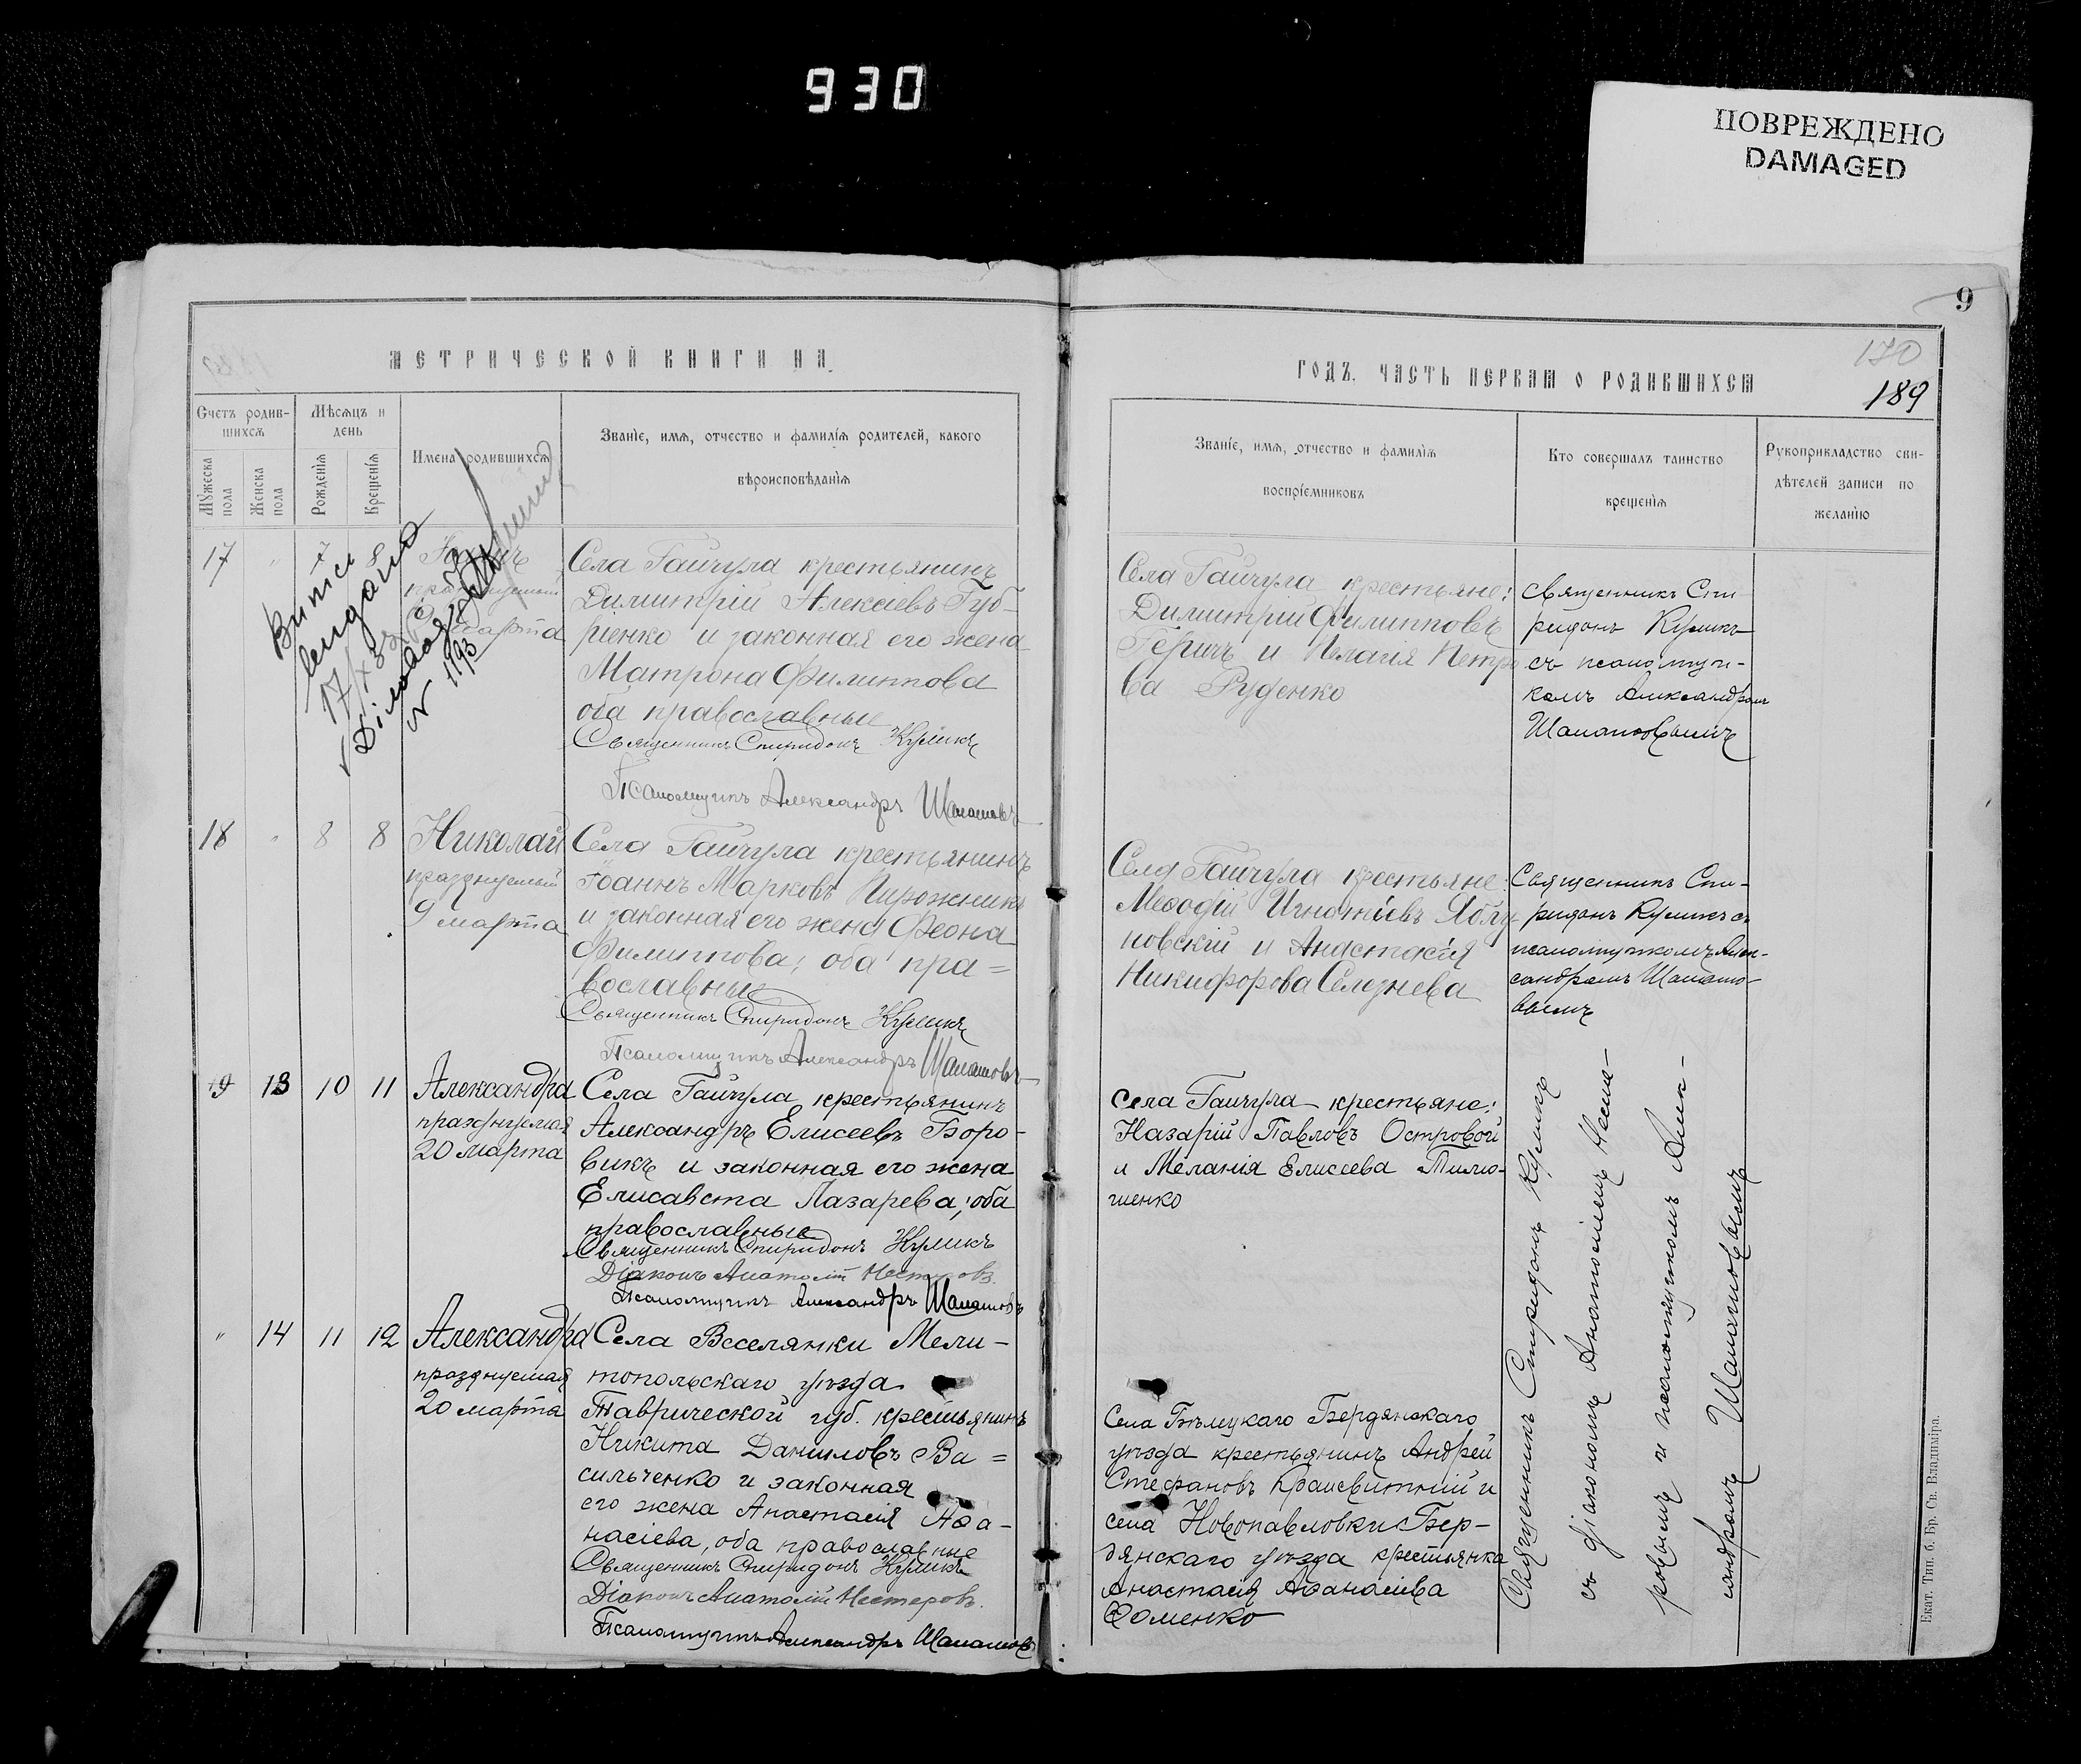 930
ПОВРЕЖДЕНО
DAMAGED
9
МЕТРИЧЕСКОЙ КНИГИ НА
ГОДЪ, ЧАСТЬ ПЕРВАЯ О РОДИВШИХСЯ
170
189
Счетъ родив-
шихся
Мѣсяцъ и
день
Мужеска
пола
Женска
пола
Рожденія
Крещенія
Имена родившихся
Званіе, имя, отчество и фамилія родителей, какого
вѣроисповѣданія
Званіе, имя, отчество и фамилія
воспріемниковъ
Кто совершалъ таинство
крещенія
Рукоприкладство сви-
дѣтелей записи по
желанію
17 " 7 8
9 марта
№ 1193
Села Гайчула крестьянинъ
Димитрій Алексіевъ Губ-
ріенко и законная его жена
Матрона Филиппова
оба православные
Священникъ Спиридонъ Куликъ
Псаломщикъ Александръ Шапаловъ
Села Гайчула крестьяне:
Димитрій Филипповъ
и Пелагія Петро
ва Руденко
Священникъ Спи
ридонъ Куликъ
съ псаломщи-
комъ Александромъ
18 " 8 8
Николай
празднуемый
9 марта
Села Гайчула крестьянинъ
Іоаннъ Марковъ Пирожникъ
и законная его жена Феона
Филиппова; оба пра=
вославные
Священникъ Спиридонъ Куликъ
Псаломщикъ Александръ Шапаловъ
Села Гайчула крестьяне:
Меѳодій Игнатіевъ Яблу
новскій и Анастасія
Никифорова Селезнева
Священникъ Спи-
ридонъ Куликъ съ
псаломщикомъ Алек-
сандромъ
19 13 10 11
Александра
празднуемая
20 марта
Села Гайчула крестьянинъ
Александръ Елисеевъ Боро-
викъ и законная его жена
Елисавета Лазарева; оба
православные
Священникъ Спиридонъ Куликъ
Діаконъ Анатолій Нестеровъ.
Псаломщикъ Александръ Шапаловъ
Села Гайчула крестьяне:
Назарій Павловъ Островой
и Меланія Елисеева Тимо-
шенко
" 14 11 12
Александра
празднуемая
20 марта
Села Веселянки Мели-
топольскаго уѣзда
Таврической губ. крестьянинъ
Никита Даниловъ Ва=
сильченко и законная
его жена Анастасія Аѳа-
насіева, оба православные
Священникъ Спиридонъ Куликъ
Діаконъ Анатолій Нестеровъ.
Псаломщикъ Александръ Шапаловъ
Села Бѣлицкаго Бердянскаго
уѣзда крестьянинъ Андрей
Стефановъ и
села Новопавловки Бер-
дянскаго уѣзда крестьянка
Анастасія Аѳанасіева
Фоменко
Священникъ Спиридонъ Куликъ
съ діакономъ Анатоліемъ Несте-
ровымъ и псаломщикомъ Алек-
сандромъ Шапаловымъ
Екат. Тип. б. Бр. Св. Владиміра.